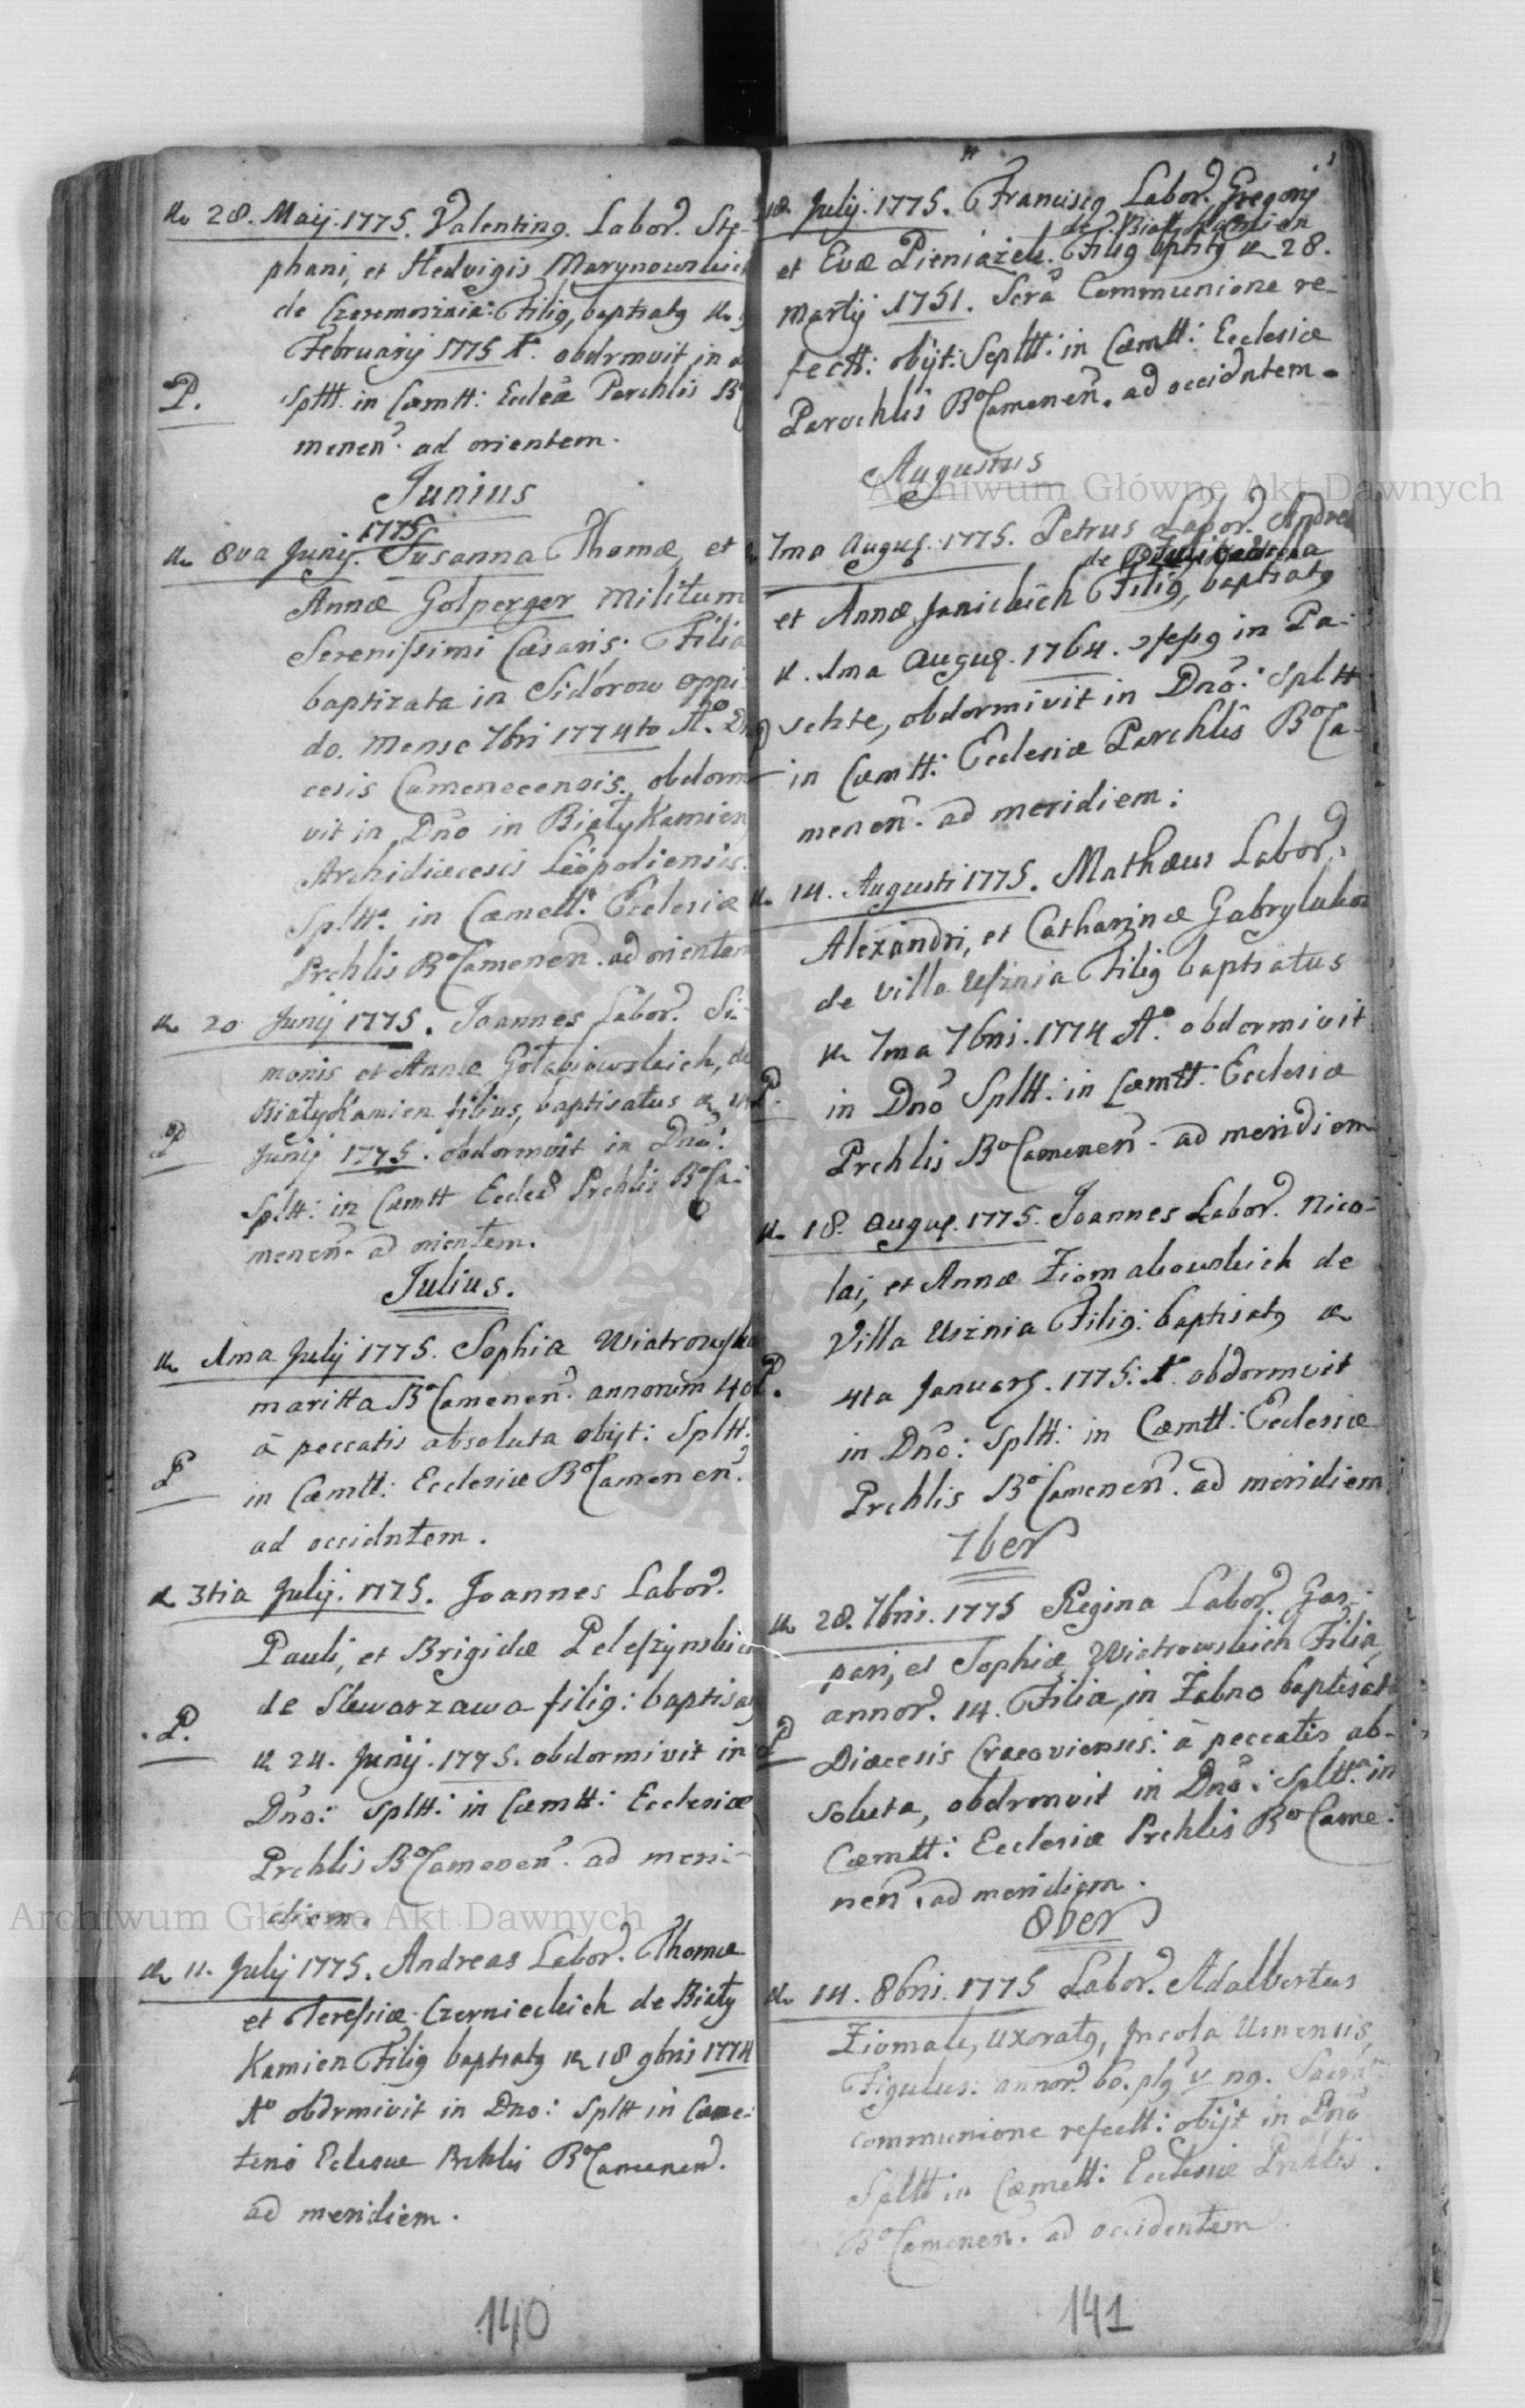 28. Maij. 1775. Valentinq. Labor. Ste-
phani, et Hedvigis Marynowskich
de Czeremosznia: Filiq, baptsatq
Februarij 1775 A°. obdrmvit in
P. Spltt. in Cœmtt: Ecclesiæ Parchlis B°
menen. ad orientem.
Junius
1775
8va Junij. Susanna Thomæ, et
Annæ Golperger Militum
Serenissimi Cæsaris: Filia
baptizata in Sidorow oppi-
do. Mense 7bri 1774to A°. Di
cesis Camenecensis, obdorm
vit in Dno in BiałyKamien
Archidiæcesis Leopoliensis.
Spltta in Cœmett: Ecclesiæ
Prchlis B°Camenen. ad orientem
20 Junij 1775. Joannes Labor. Si-
monis et Annæ Gołabiowskich, de
BiałyKamien filius, baptisatus
P Junij 1775. obdormvit in Dno:
Spltt: in Cœmtt Eccles Prchlis B°Ca-
menen. ad orientem.
Julius.
1ma Julij 1775. Sophia Wiatrowska
maritta B°Camenen. annorum 40
à peccatis absoluta obijt: Spltt.
P in Cœmtt: Ecclesiæ B°Camenen.
ad occidntem.
3tia Julij. 1775. Joannes Labor.
Pauli, et Brigidæ Pelesżynskich
de Skwarzawa filiq: baptisatq
P. 24. Junij. 1775. obdormivit in
Dno: Spltt: in Cœmtt: Ecclesiæ
Prchlis B°Camenen. ad meri-
diem.
11. Julij 1775. Andreas Labor. Thomæ
et Teresiæ Czernieckich de Biały
Kamien Filiq baptsatq 18 9bris 1774
A° obdrmivit in Dno: Spltt in Cœme-
terio Eclesiæ Prchlis B°Camenen.
ad meridiem.
140
18. Julij. 1775. Franciscq Labor. Gregorij
de Biały Kamien
et Evæ Pieniażek. Filiq bptstq 28.
martij 1751. Scrâ Communione re-
fectt: obijt: Sepltt: in Cœmtt: Ecclesiæ
Parochlis B°Camenen. ad occidntem.
Augustus
7ma Augus. 1775. Petrus Labor. Andreæ
de
et Annæ Janickich Filiq, baptsatq
1ma Augus. 1764. in Pa-
schte, obdormivit in Dno: Spltt
P in Cœmtt: Ecclesiæ Parchlis B°Ca-
menen. ad meridiem:
14. Augusti 1775. Mathæus Labor.
Alexandri, et Catharinæ Gabryluków
de Villa Usznia Filiq baptsatus
7ma 7bris. 1774 A°. obdormivit
P. in Dno Spltt: in Cœmtt: Ecclesiæ
Prchlis B°Camenen. ad meridiem
18. Augus. 1775. Joannes Labor. Nico-
lai, et Annæ Ziomakowskich de
Villa Usznia Filiq: baptisatq
P. 4ta Januarij. 1775: A° obdormvit
in Dno: Spltt: in Cœmtt: Ecclesiæ
Prchlis B°Camenen. ad meridiem
7ber
28. 7bris. 1775 Regina Labor. Gas-
pari, et Sophiæ Wiatrowskich Filia,
annor. 14. Filia, in Żabno baptisata
P Diœcesis Cracoviensis: à peccatis ab-
soluta, obdrmvit in Dno: Spltta in
Cœmtt: Ecclesiæ Prchlis B° Came-
nen. ad meridiem.
8ber
14. 8bris. 1775 Labor. Adalbertus
Ziomak, uxoratq, Incola Usnensis,
Figulus: annor. 60. Sacrâ
communione refectt: obijt in Dno
Spltt in Cœmett: Ecclesiæ Prchlis
B°Camenen. ad occidentem
141
Archiwum Główne Akt Dawnych
Archiwum Główne Akt Dawnych